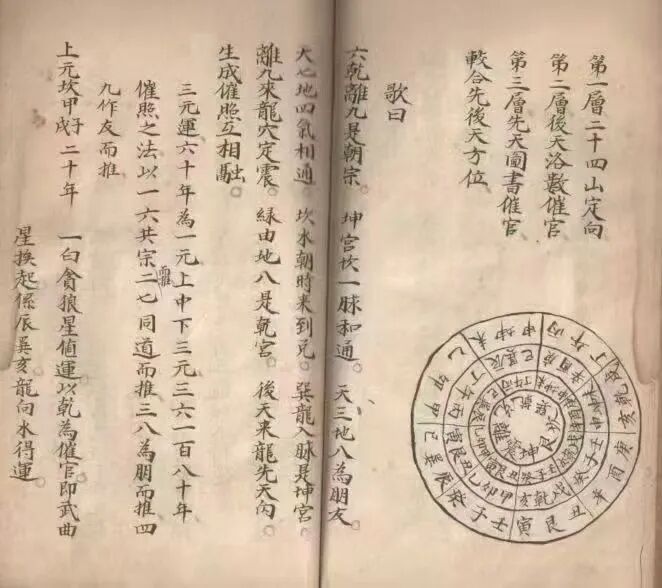 第一層二十四山定向
第二層後天洛數催官
第三層先天圖書催官
較合先後天方位
丙午丁戌乾亥庚酉辛丑艮寅壬子癸辰巽巳甲卯乙未坤申
歌曰
六乾離九是朝宗 坤宮坎一脉和通。 天三地八為朋友
大七地四氣相通 坎水朝時來到兄。 巽龍入脉是坤宮。
離九來龍穴定震。 緣由地八是乾宮。 後天來龍先天向。
生成催照互相融。
三元運六十年為一元上中下三元三六一百八十年
催照之法以一六共宗而推二七同道而推三八為朋而推四
九作友而推
上元坎甲子戌 二十年
一白貪狼星值運以乾為催官即武曲
星挨起係辰巽亥龍向水得運